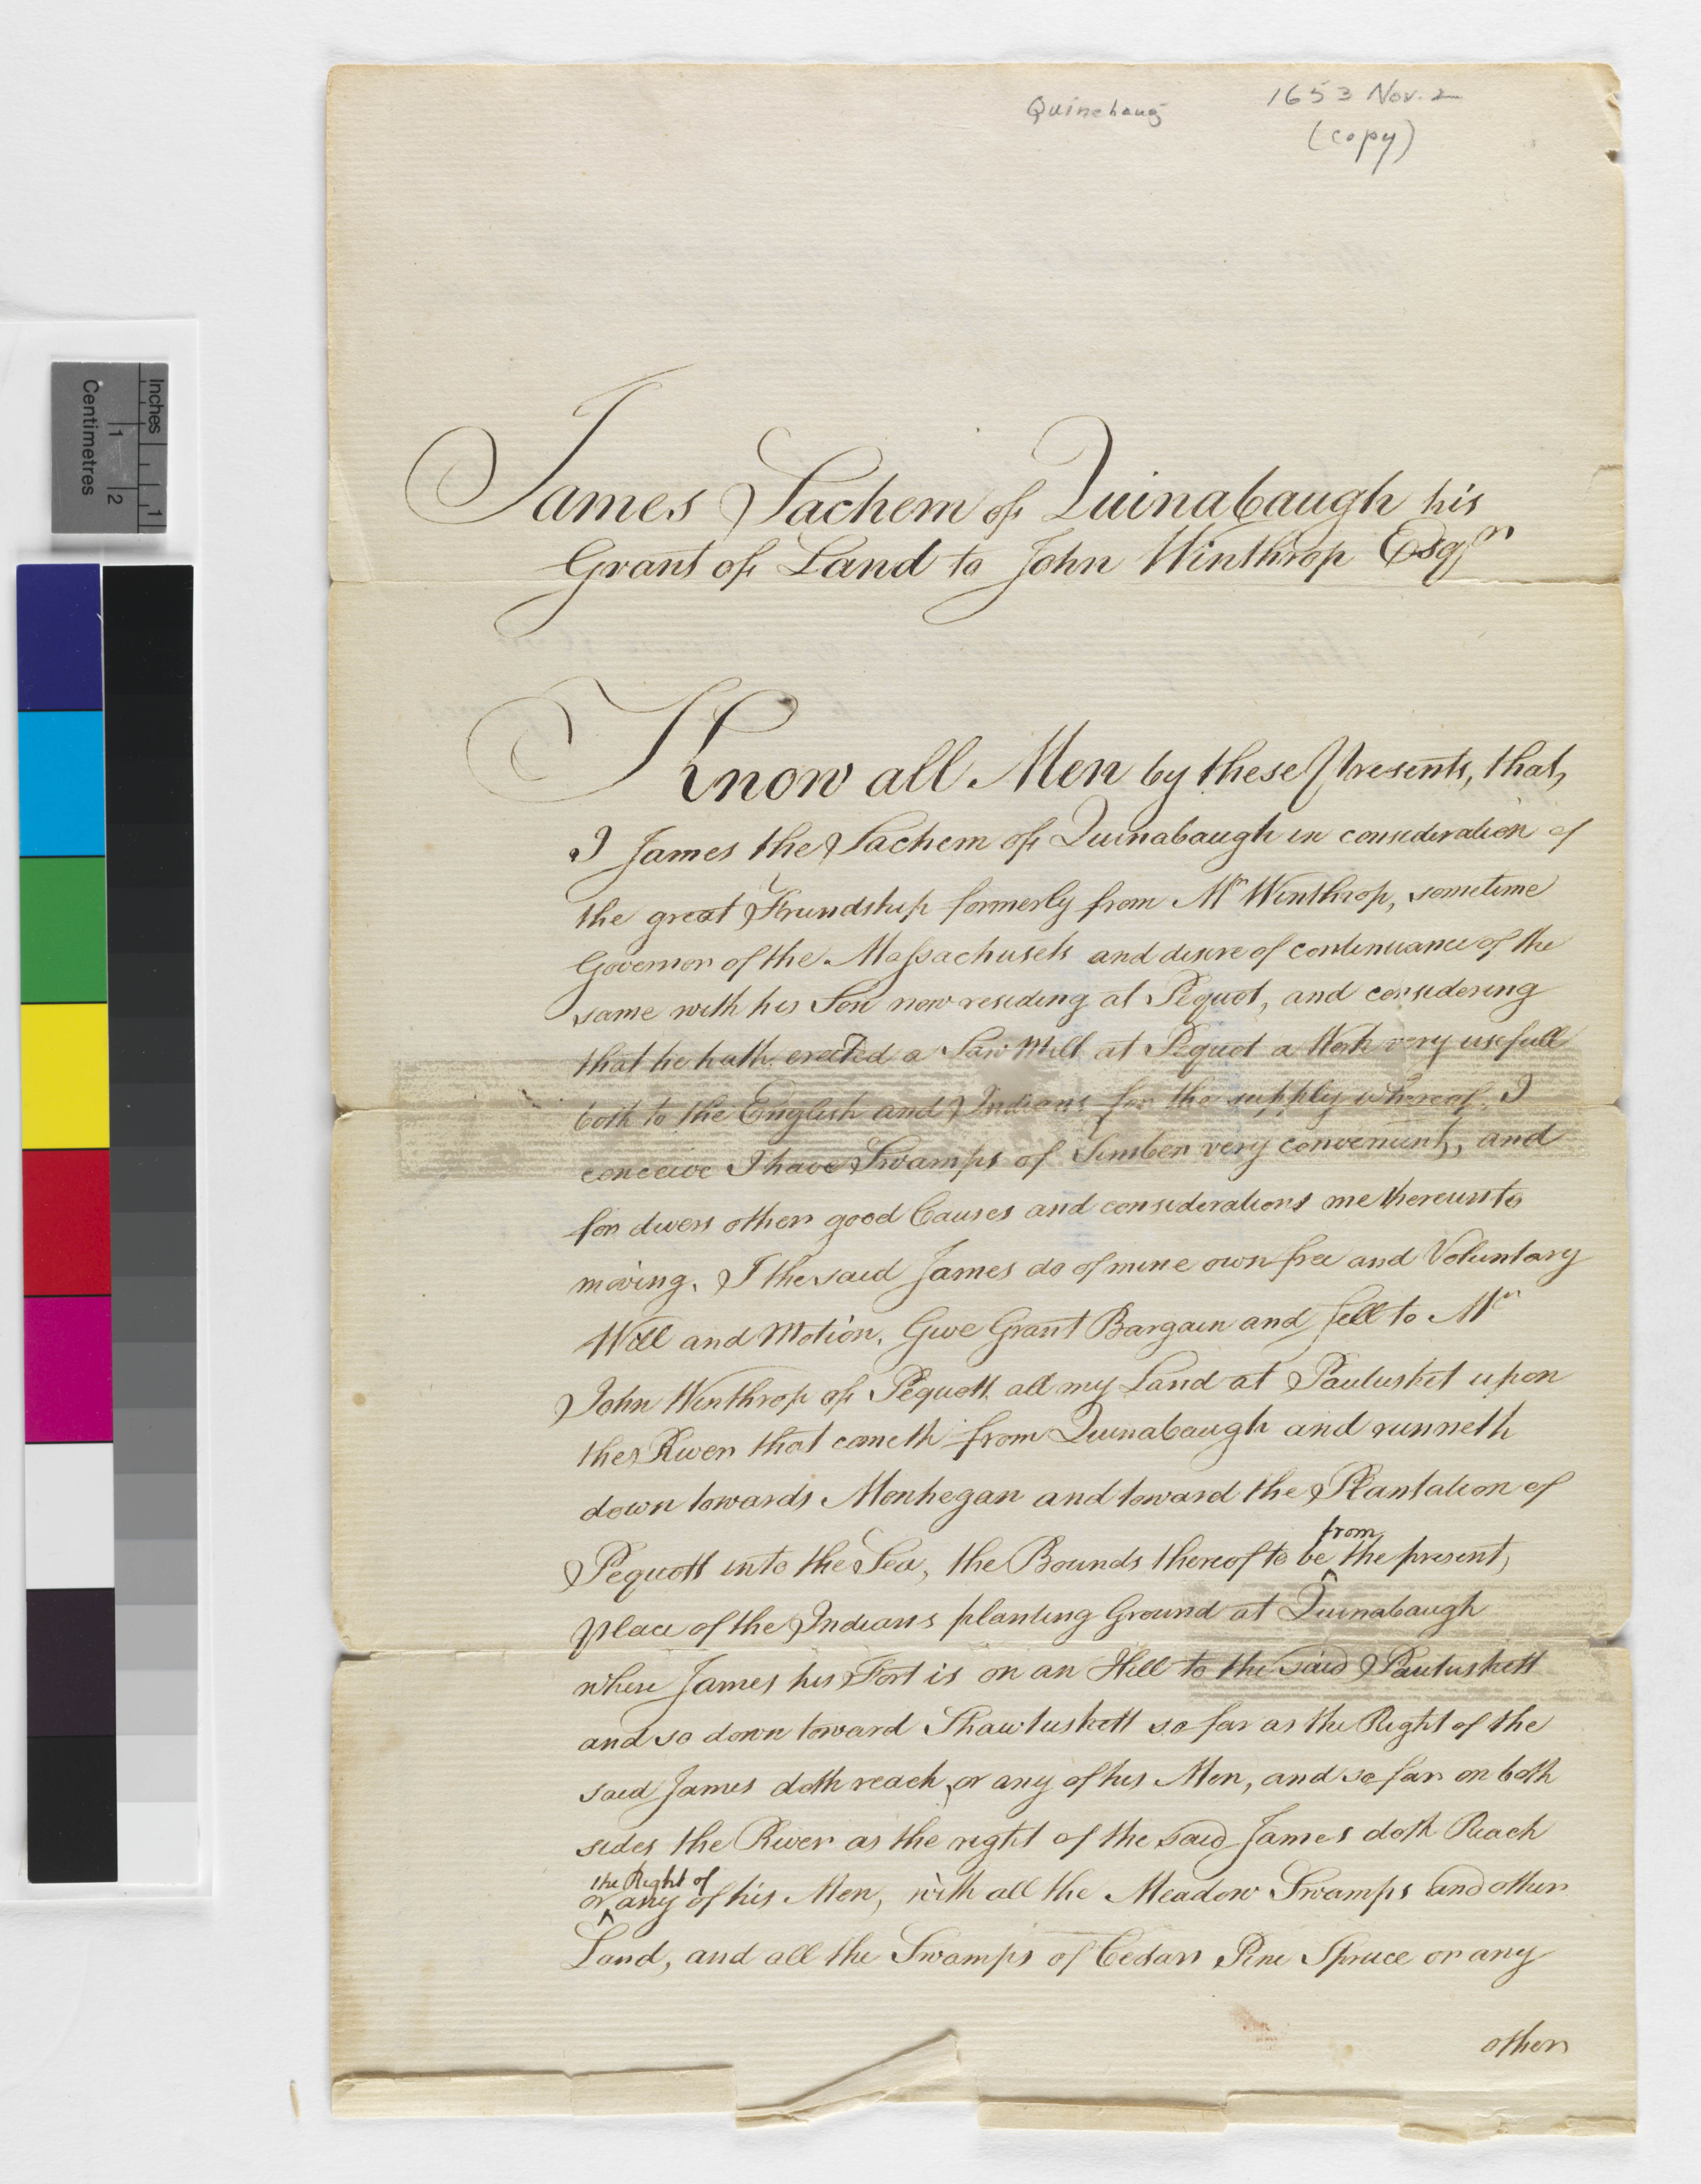 Quinebaug
1653 Nov. 2
(copy)
James Sachem of Quinabaugh his
Grant of Land to John Winthrop Esqr
Know all Men by these Presents, that,
I James the Sachem of Quinabaugh in consideration of
the great Friendship formerly from Mr Winthrop, sometime
Governor of the Massachusets and desire of continuance of the
same with his Son now residing at Pequot, and considering
that he hath erected a Saw Mill at Pequot a Work very usefull
both to the English and Indians for the supply whereof, I
conceive I have Swamps of Timber very convenient, and
for divers other good Causes and considerations me thereunto
moving. I the said James do of mine own free and Voluntary
Will and Motion, Give Grant Bargain and Sell to Mr
John Winthrop of Pequott all my Land at Pautusket upon
the River that cometh from Quinabaugh and runneth
down towards Monhegan and toward the Plantation of
Pequott into the Sea, the Bounds thereof to be from the present,
place of the Indians planting Ground at Quinabaugh
where James his Fort is on an Hill to the said Pautuskett
and so down toward Shautuskett so far as the Right of the
said James doth reach, or any of his Men, and so far on both
sides the River as the right of the said James doth Reach
or the Right of any of his Men, with all the Meadow Swamps and other
Land, and all the Swamps of Cedar Pine Spruce or any
other
Inches
1
Centimetres
1 2